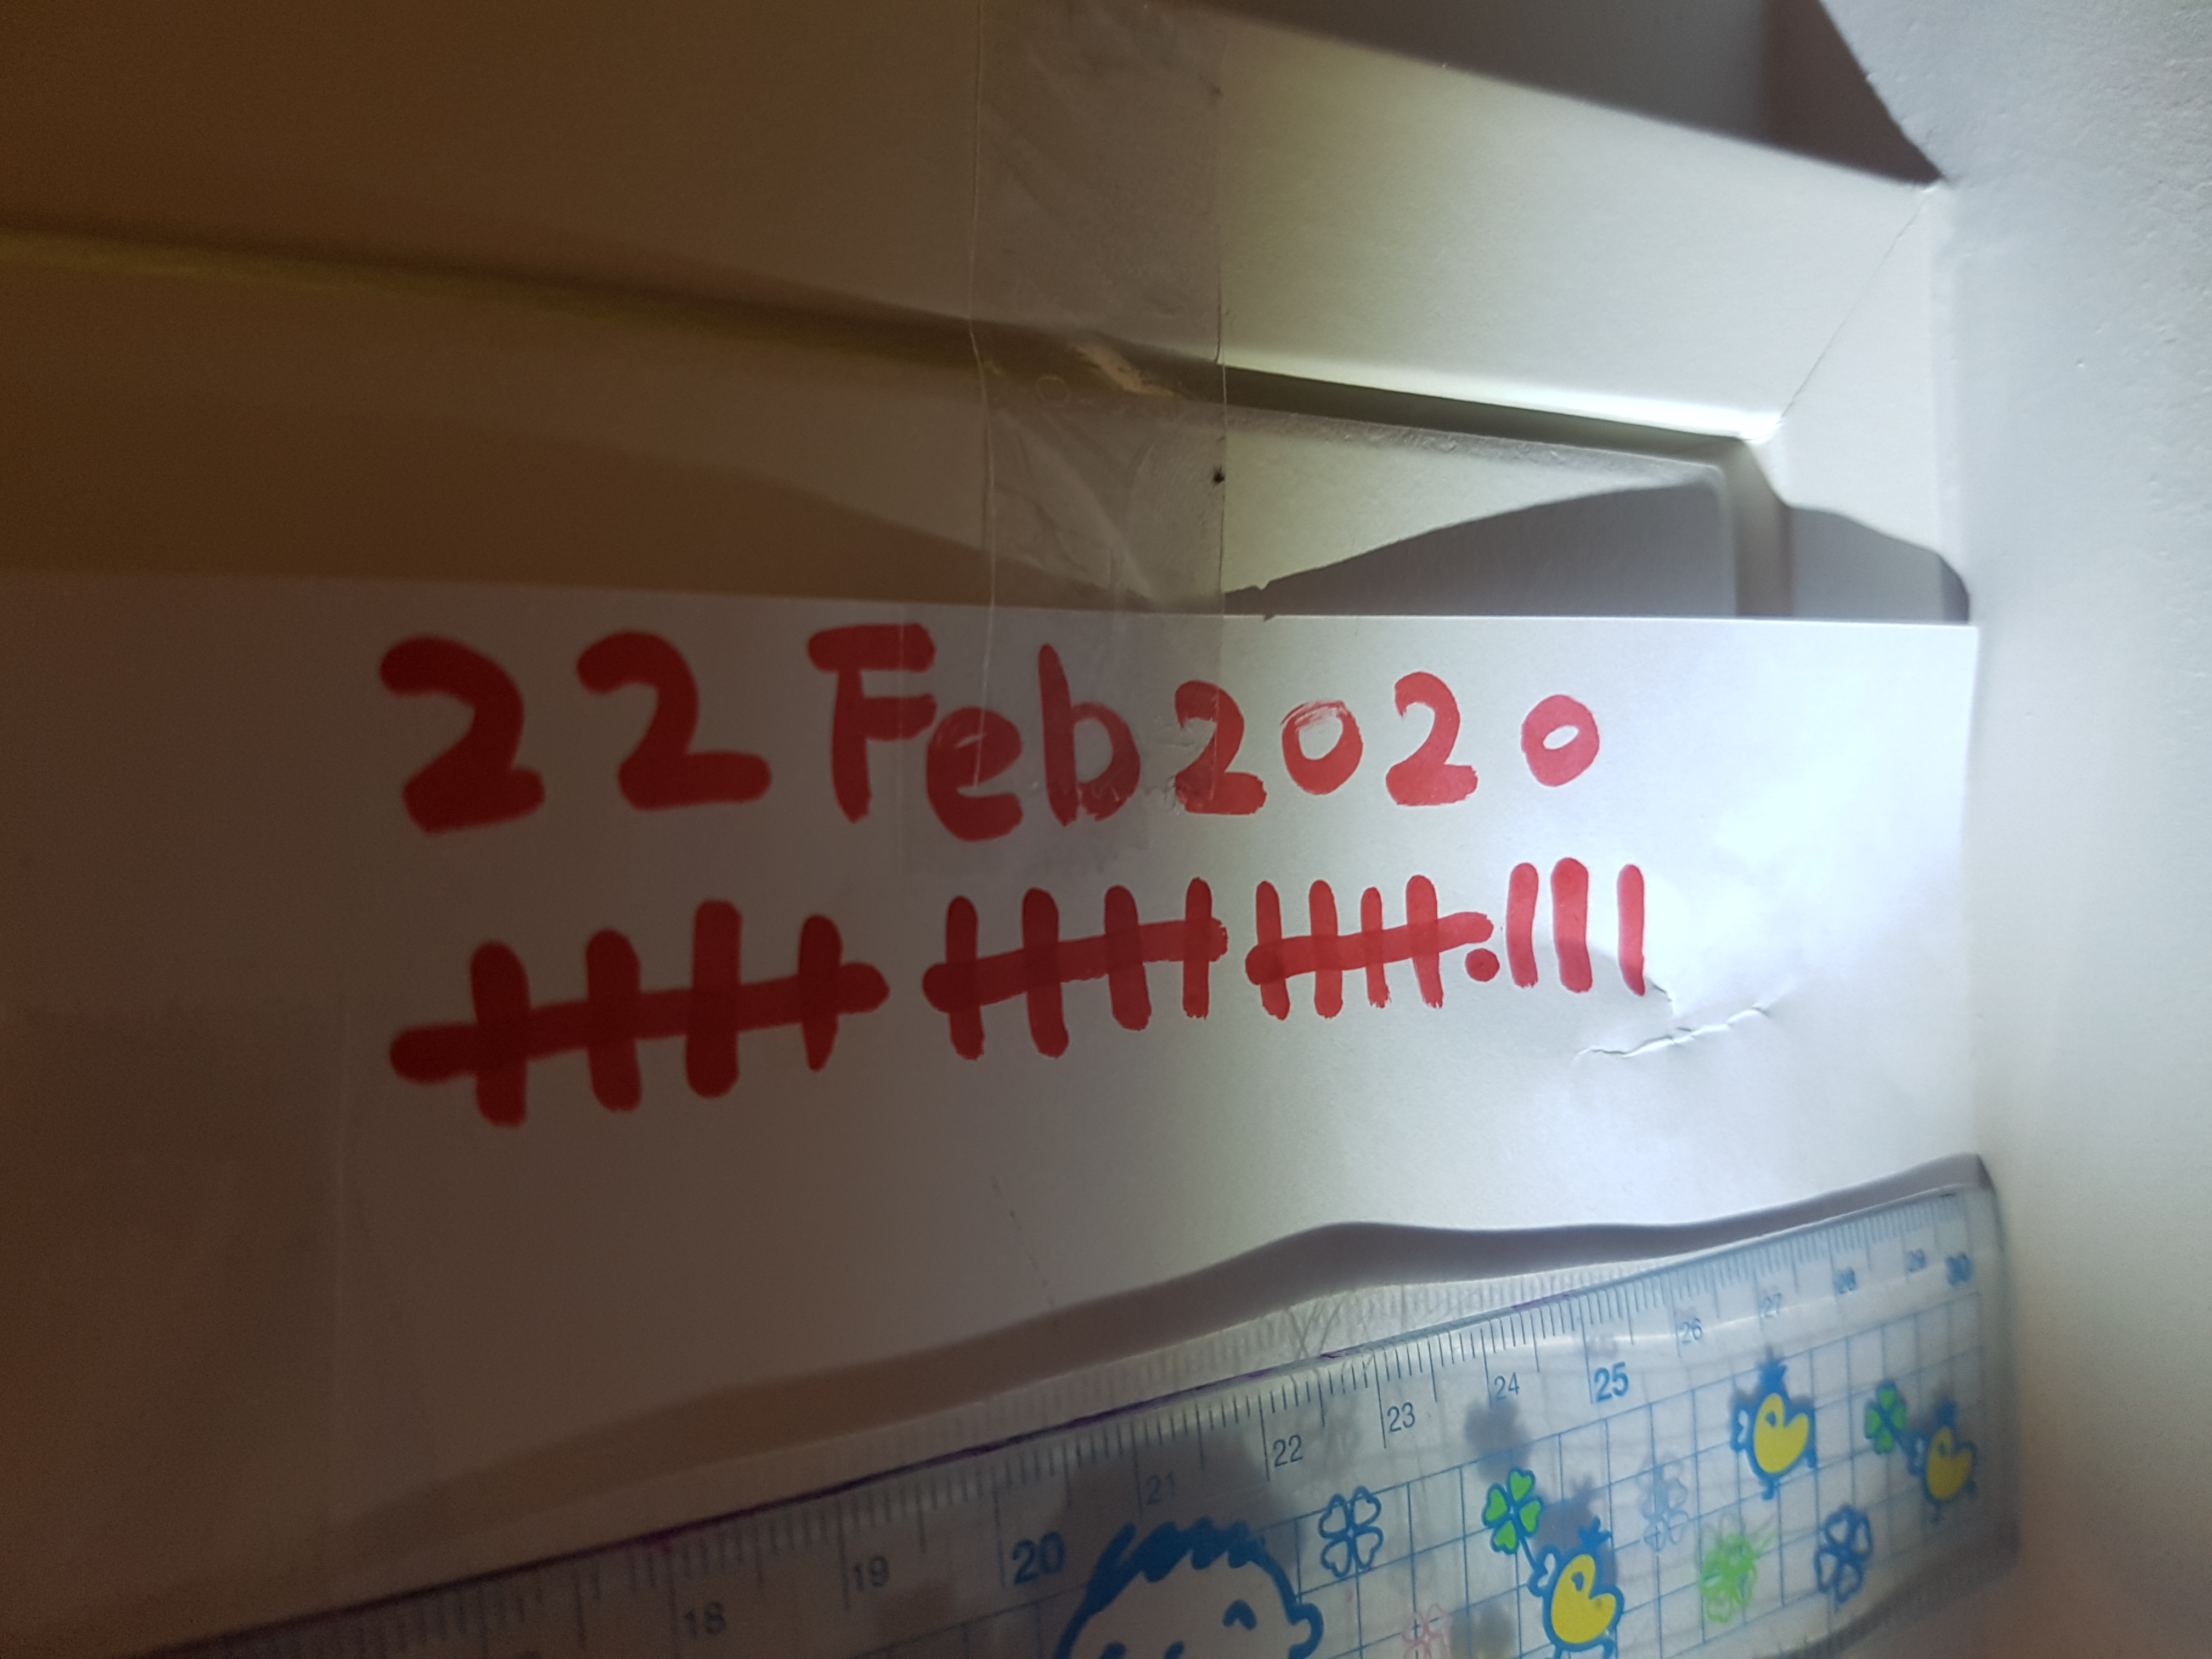 22 Feb 2020
18 19 20 21 22 23 24 25 26 27 28 29 30